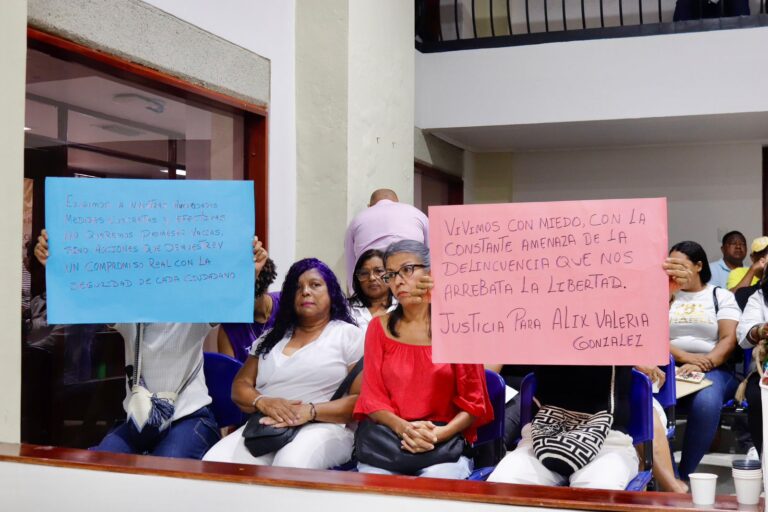 EXIGIMOS A NUESTRAS AUTORIDADES
MEDIDAS CONCRETAS Y EFECTIVAS
NO QUEREMOS PROMESAS VACIAS,
SINO ACCIONES QUE DEMUESTREN
UN COMPROMISO REAL CON LA
SEGURIDAD DE CADA CIUDADANO
VIVIMOS CON MIEDO, CON LA
CONSTANTE AMENAZA DE LA
DELINCUENCIA QUE NOS
ARREBATA LA LIBERTAD.
JUSTICIA PARA ALIX VALERIA
GONZALEZ